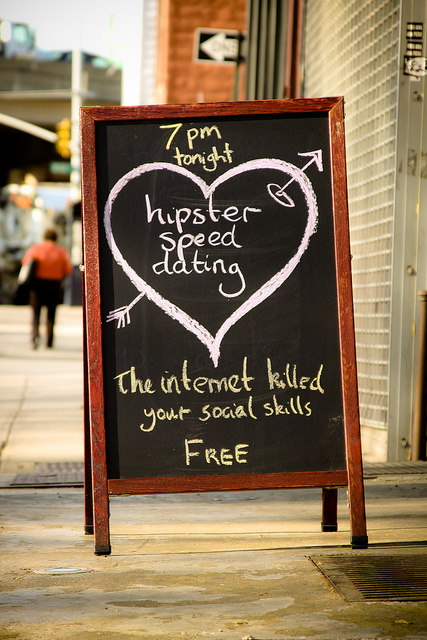 7 pm
tonight
hipster
speed
dating
The internet killed
your social skills
FREE